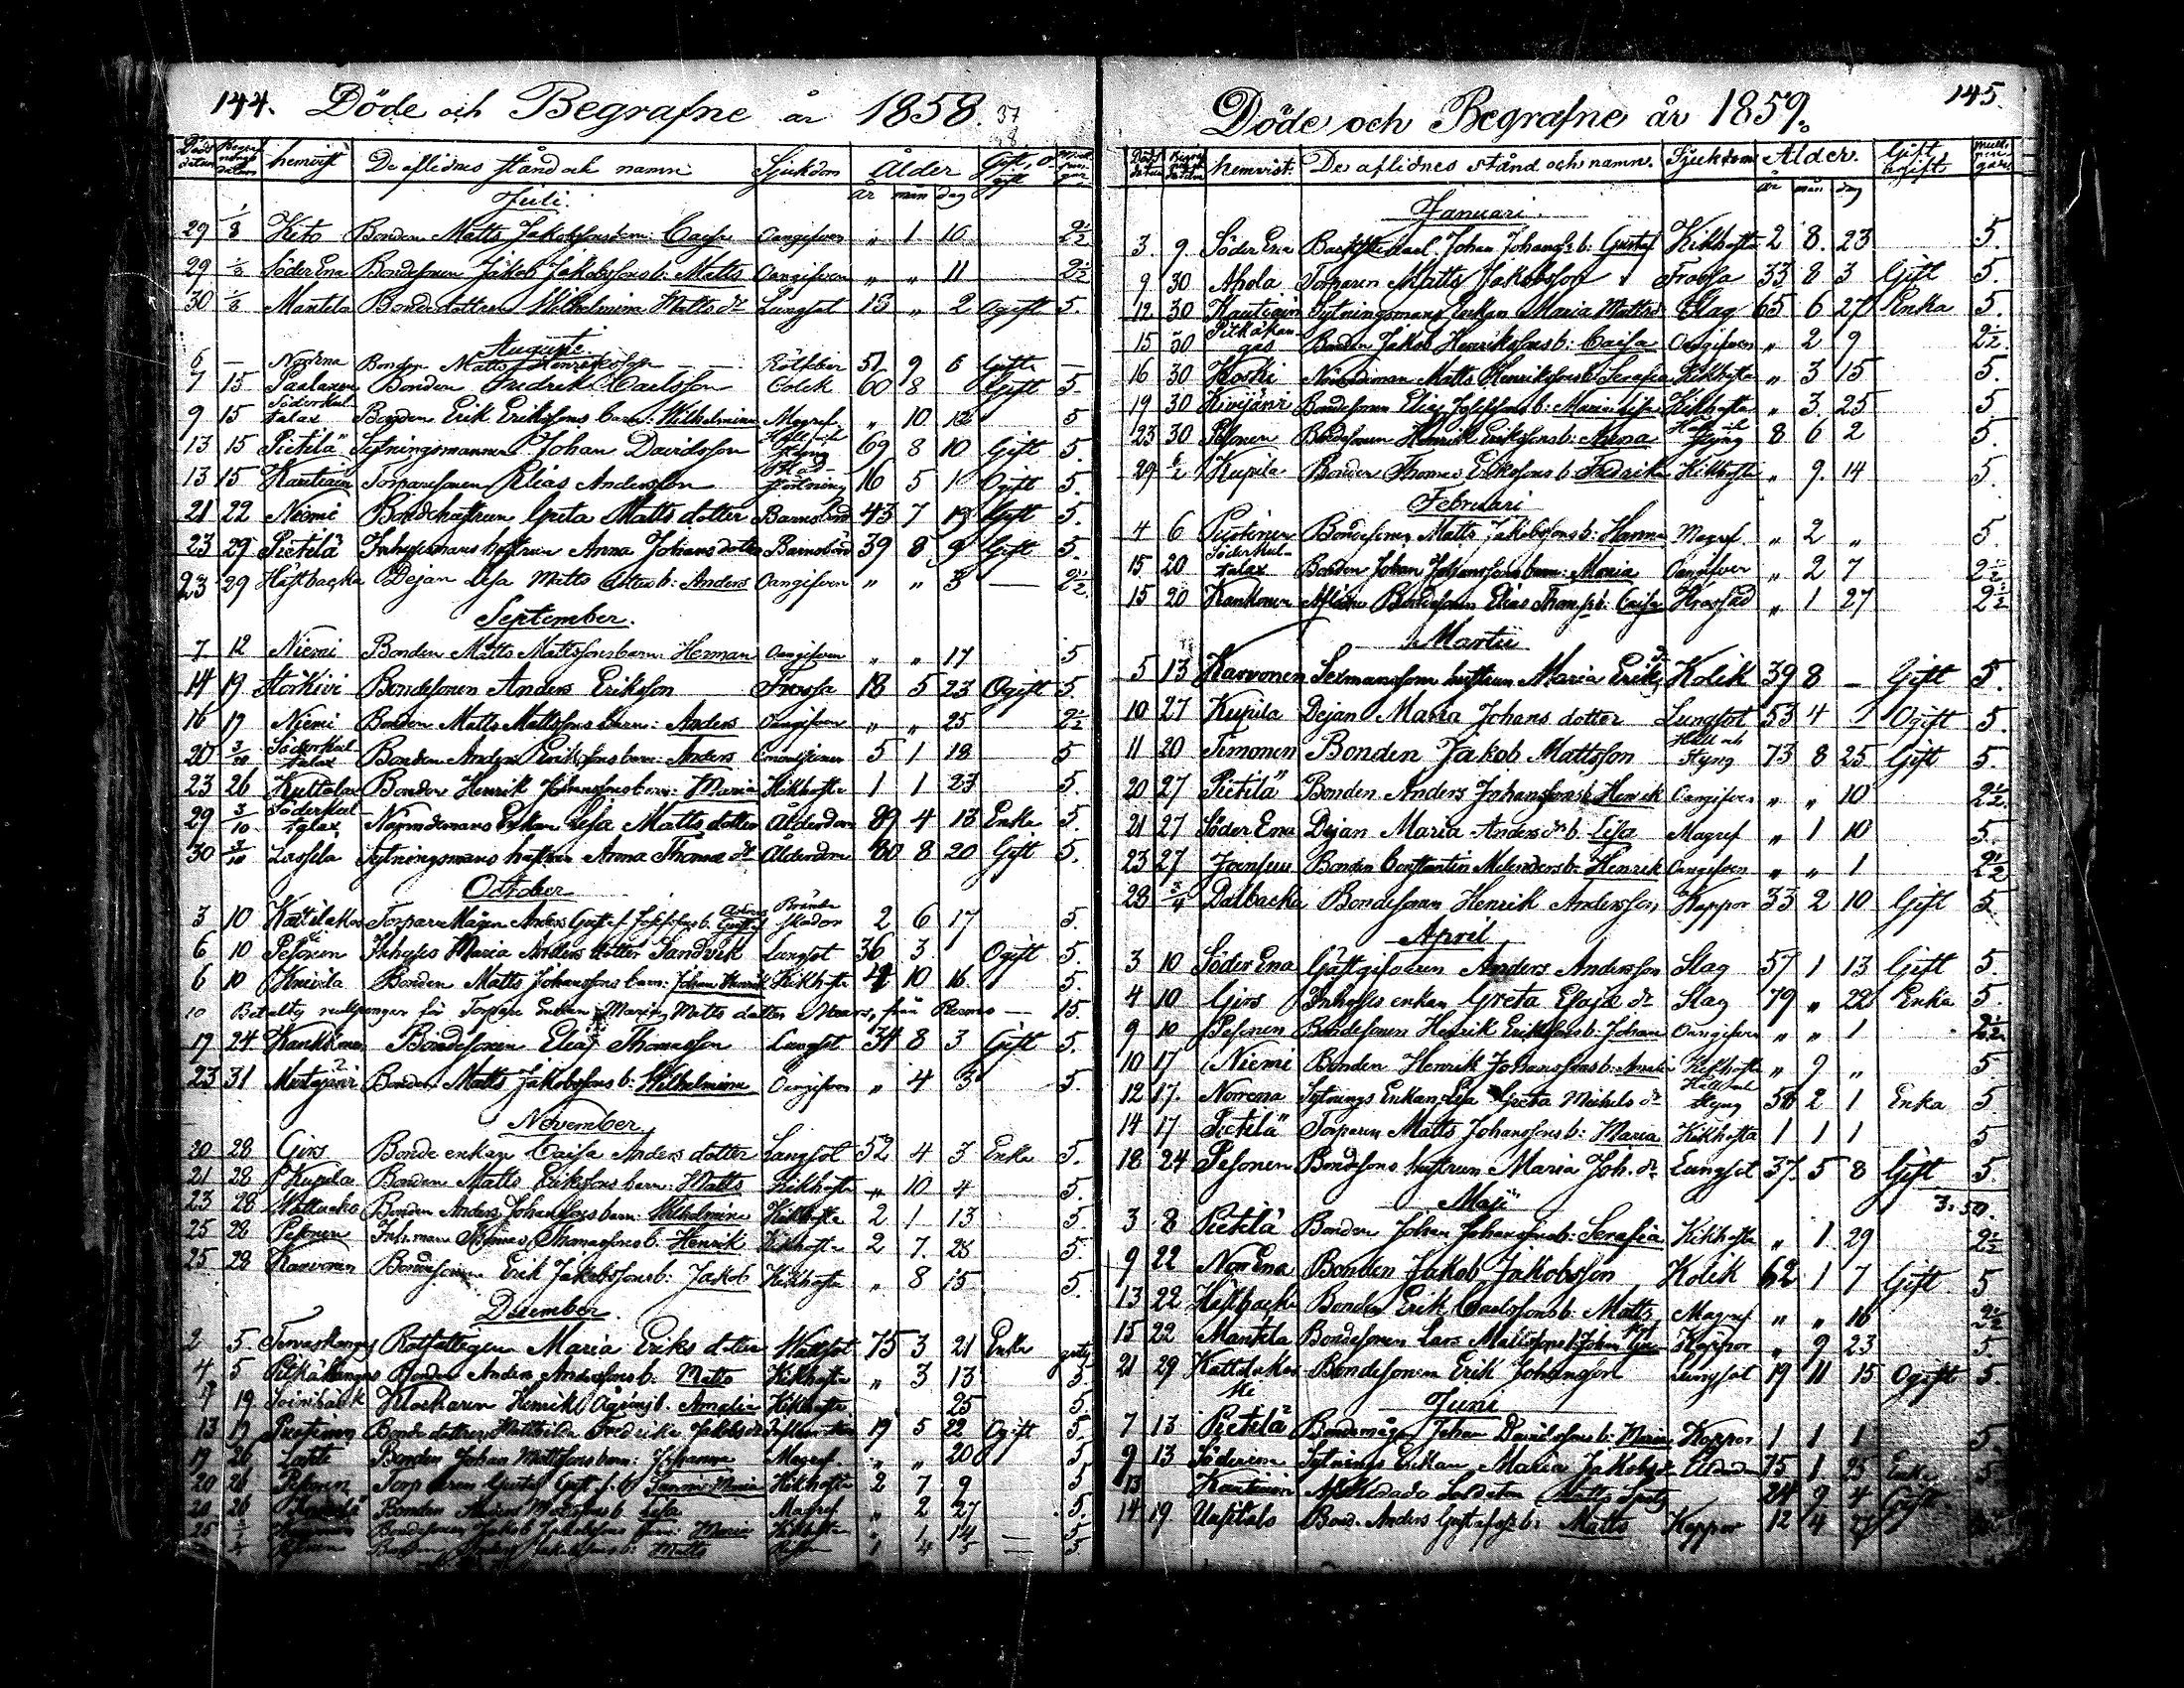 144. Döde och Begrafne år 1858. 37
Döds datum Begrafnings datum hemvist De aflidnes stånd och namn Sjukdom Ålder Gift, o gift
år mån dag
Juli.
29 1/8 Keto Bonden Matts Jakobssons barn: Caisa Oangifven " 1 10 2½
29 1/8 Söder Ena Bondesonen Jakob Jakobssons b: Matts Oangifven " " 11 2½
30 1/8 Mantila Bondedottren Wilhelmina Matts dr Lungsot 13 " 2 Ogift 5.
Augusti
6 — Norrena Bonden Matts Henriksson Rötfeber 51 9 6 Gift —
7 15 Paalanen Bonden Fredrik Carlsson Colik 60 8 Gift 5.
9 15 Söderkultalax Bonden Erik Erikssons barn: Wilhelmina Magref. " 10 12 5
13 15 Pietilä Sytningsmannen Johan Davidsson Håll och Styng 69 8 10 Gift 5.
13 15 Kautiain Torparesonen Elias Andersson Blodstörtning 16 5 1 Ogift 5.
21 22 Niemi Bondehustrun Greta Matts dotter Barnsbörd 43 7 19 Gift 5.
23 29 Pietilä Inhysesmans hustrun Anna Johans dotter Barnsbörd 39 8 9 Gift 5.
23 29 Hästbacka Dejan Lisa Matts dotters b: Anders Oangifven " " 3 — 2½
September.
7 12 Niemi Bonden Matts Mattssons barn: Herman Oangifven " " 17 5
14 19 Storkivi Bondesonen Anders Eriksson Frossa 18 5 23 Ogift 5.
16 19 Niemi Bonden Matts Mattssons barn: Anders Oangifven " " 25 2½
20 3/10 Söderkultalax Bonden Anders Erikssons barn: Anders 5 1 18 5
23 26 Kuttalax Bonden Henrik Johanssons barn: Maria Kikhosta 1 1 23 5.
29 3/10 Söderkultalax Nämndemans Enkan Lisa Matts dotter Ålderdom 89 4 13 Enka 5.
30 3/10 Lassila Sytningsmans hustrun Anna Thomas dr Ålderdom 80 8 20 Gift 5.
October
3 10 Torpare Mågen Anders Brännskador 2 6 17 5.
6 10 Pesonen Inhyses Maria Anders dotter Sandvik Lungsot 36 3 Ogift 5.
6 10 Knivila Bonden Matts Johanssons barn: Johan Henrik Kikhosta 4 10 16 5.
10 Betalts mullpenger för Torpare Enkan Maria Matts dotter från — 15.
17 24 Kaukkonen Bondesonen Elias Thomasson Lungsot 34 8 3 Gift 5.
23 31 Mustajärvi Bonden Matts Jakobssons b: Wilhelmina Oangifven " 4 3 5
November.
20 28 Girs Bonde enkan Caisa Anders dotter Lungsot 52 4 3 Enka 5.
21 28 Kupila Bonden Matts Erikssons barn: Matts Kikhosta " 10 4 5.
23 28 Bonden Anders Johanssons barn: Wilhelmina Kikhosta 2 1 13 5.
25 28 Pesonen Inh. man Thomas Thomassons b. Henrik Kikhosta 2 7. 25 5.
25 28 Karvonen Bondesonen Erik Jakobssons b: Jakob Kikhosta " 8 15 5.
December
2 5. Torvaskangas Rotfattigen Maria Eriks dotter Wattsot 75 3 21 Enka gratis
4 5 Pitkäkangas Bonden Anders Anderssons b: Matts Kikhosta " 3 13 5.
7 19 Klockaren Henrik Ågrens b. Amalia Kikhosta 25 5.
13 19 Bondedottren Mathilda Fredrika Jakobs dr 19 5 22 Ogift 5.
19 26 Bonden Johan Mattssons barn: Johanna Magref " " 20 5
20 26 Pesonen Torparen Kikhosta 2 7 9 5
20 26 Bonden b. Lisa Magref " 2 27 5.
25 Bondesonen Jakob Jakobssons barn: Maria Kikhosta " 1 14 — 5
Matts 1 4 5 — 5.
145.
Döde och Begrafne år 1859.
Döds datum hemvist. De aflidnes stånd och namn. Sjukdom Ålder. Gift ogift
år mån dag
Januari.
3. 9. Söder Ena Johan Johanss. b: Gustaf Kikhosta 2 8. 23 5.
9 30 Ahola Torparen Matts Jakobsson Frossa 33 8 3 Gift 5.
12 30 Kautiain Sytningsmans Enkan Maria Matts d Slag 65 6 27 Enka 5.
15 30 Pitkäkangas Bonden Jakob Henrikssons b: Caisa Oangifven " 2 9 2½
16 30 Koski Nämndeman Matts Henrikssons b: Serafia Kikhosta " 3 15 5.
19 30 Kivijärvi Bondesonen Elias Josefssons b: Maria Lisa Kikhosta " 3. 25 5.
23 30 Pesonen Bondesonen Henrik Erikssons b: Anna Håll och Styng 8 6 2 5.
29 6/2 Kupila Bonden Thomas Erikssons b: Fredrik Kikhosta " 9. 14 5.
Februari
4 6 Bondesonen Matts Jakobssons b: Hanna Magref. " 2 " 5.
15 20 Söderkultalax Bonden Johan Johanssons barn: Maria Oangifven " 2 7 2½
15 20 Kaukonen Aflidne Bondesonen Elias Thomss. b: Caisa " 1 27 2½
Martii
5 13 Karvonen Sexmanssons hustrun Maria Eriks d Kolik 39 8 — Gift 5.
10 27 Kupila Dejan Maria Johans dotter Lungsot 53 4 1 Ogift 5.
11 20 Timonen Bonden Jakob Mattsson Håll och Styng 73 8 25 Gift 5.
20 27 Pietilä Bonden Anders Johanssons b Henrik Oangifven " " 10 2½
21 27 Söder Ena Dejan Maria Anders dr b. Lisa Magref " 1 10 5.
23 27 Joensuu Bonden Constantin Melenders b: Henrik Oangifven " " 1 2½
28 3/4 Dalbacka Bondesonen Henrik Andersson Koppor 33 2 10 Gift 5.
April
3 10 Söder Ena Gästgifvaren Anders Andersson Slag 57 1 13 Gift 5.
4 10 Girs Inhyses enkan Greta Esaja dr Slag 79 " 22 Enka 5.
9 10 Pesonen Bondesonen Henrik Erikssons b: Johan Oangifven " " 1 2½
10 17 Niemi Bonden Henrik Johanssons b: Amalia Kikhosta " 9 " 5
12 17. Norrena Sytnings Enkan Lisa Greta Mickels dr Håll och Styng 58 2 1 Enka 5.
14 17 Pietilä Torparen Matts Johanssons b: Maria Kikhosta 1 1 1 5
18 24 Pesonen Bondesons hustrun Maria Joh. dr Lungsot 37. 5 8 Gift 5.
3:50.
Maji
3 8 Pietilä Bonden Johan Johanssons b: Serafia Kikhosta " 1 29 2½
9 22 Norr Ena Bonden Jakob Jakobsson Kolik 62 1 7 Gift 5
13 22 Hästbacka Bonden Erik Carlssons b: Matts Magref " " 16 2½
15 22 Mantila Bondesonen Lars Mattssons b: Johan Koppor " 9 23 5.
21 29 Kattilakoski Bondesonen Erik Johansson Lungsot 19 11 15 Ogift 5.
Juni
7 13 Pietilä Bondemågen Johan Davidssons b: Maria Koppor 1 1 1 5
9 13 Söderena Sytnings Enkan Maria Jakobs dr Ålderdom 75 1 25 Enka 5
13 Kautiain Afskedade Soldaten Matts 24 9 4 Gift
14 19 Uusitalo Bond. Anders Gustafss. b: Matts Koppor 12 4